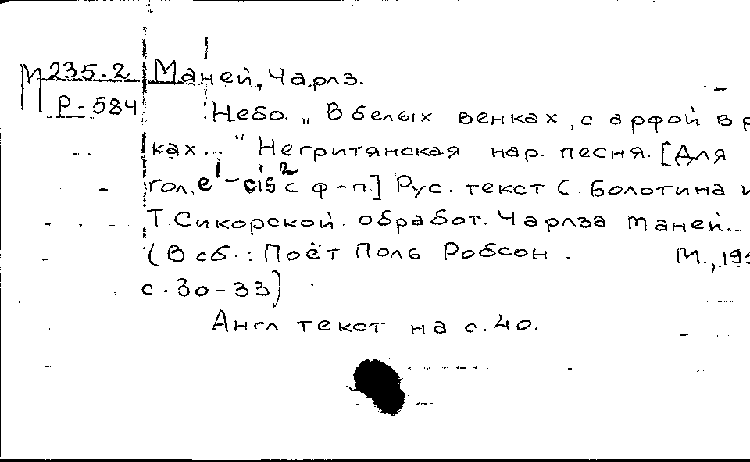 М 235.2 Маней, Чарлз.
Р-584 Небо. „В белых венках, с арфой в р
ках..." Негритянская нар. песня. [Для
гол. e¹-cis² с ф-п.] Рус. текст С. Болотина и
Т. Сикорской. обработ. Чарлза Маней..
(В сб.: Поёт Поль Робсон. М., 195
с. 30-33)
Англ текст на с. 40.